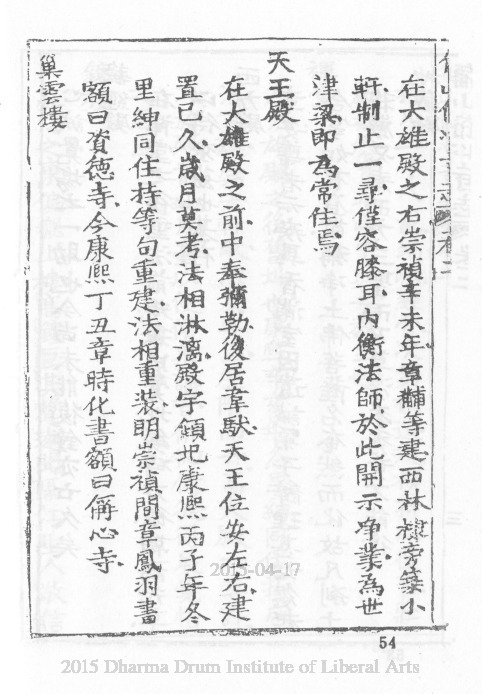 在大雄殿之右崇禎辛未年章黼等建西林棲旁築小
軒制止一尋僅容膝耳內衡法師於此開示淨業為世
津梁即為常住焉
天王殿
在大雄殿之前中奉彌勒後居韋馱天王位安左右建
置已久歲月莫考法相淋漓殿宇傾圮康熙丙子年冬
里紳同住持等句重建法相重裝明崇禎間章鳳羽書
額曰資德寺今康熙丁丑章時化書額曰稱心寺
巢雲樓
54
2015-04-17
2015 Dharma Drum Institute of Liberal Arts